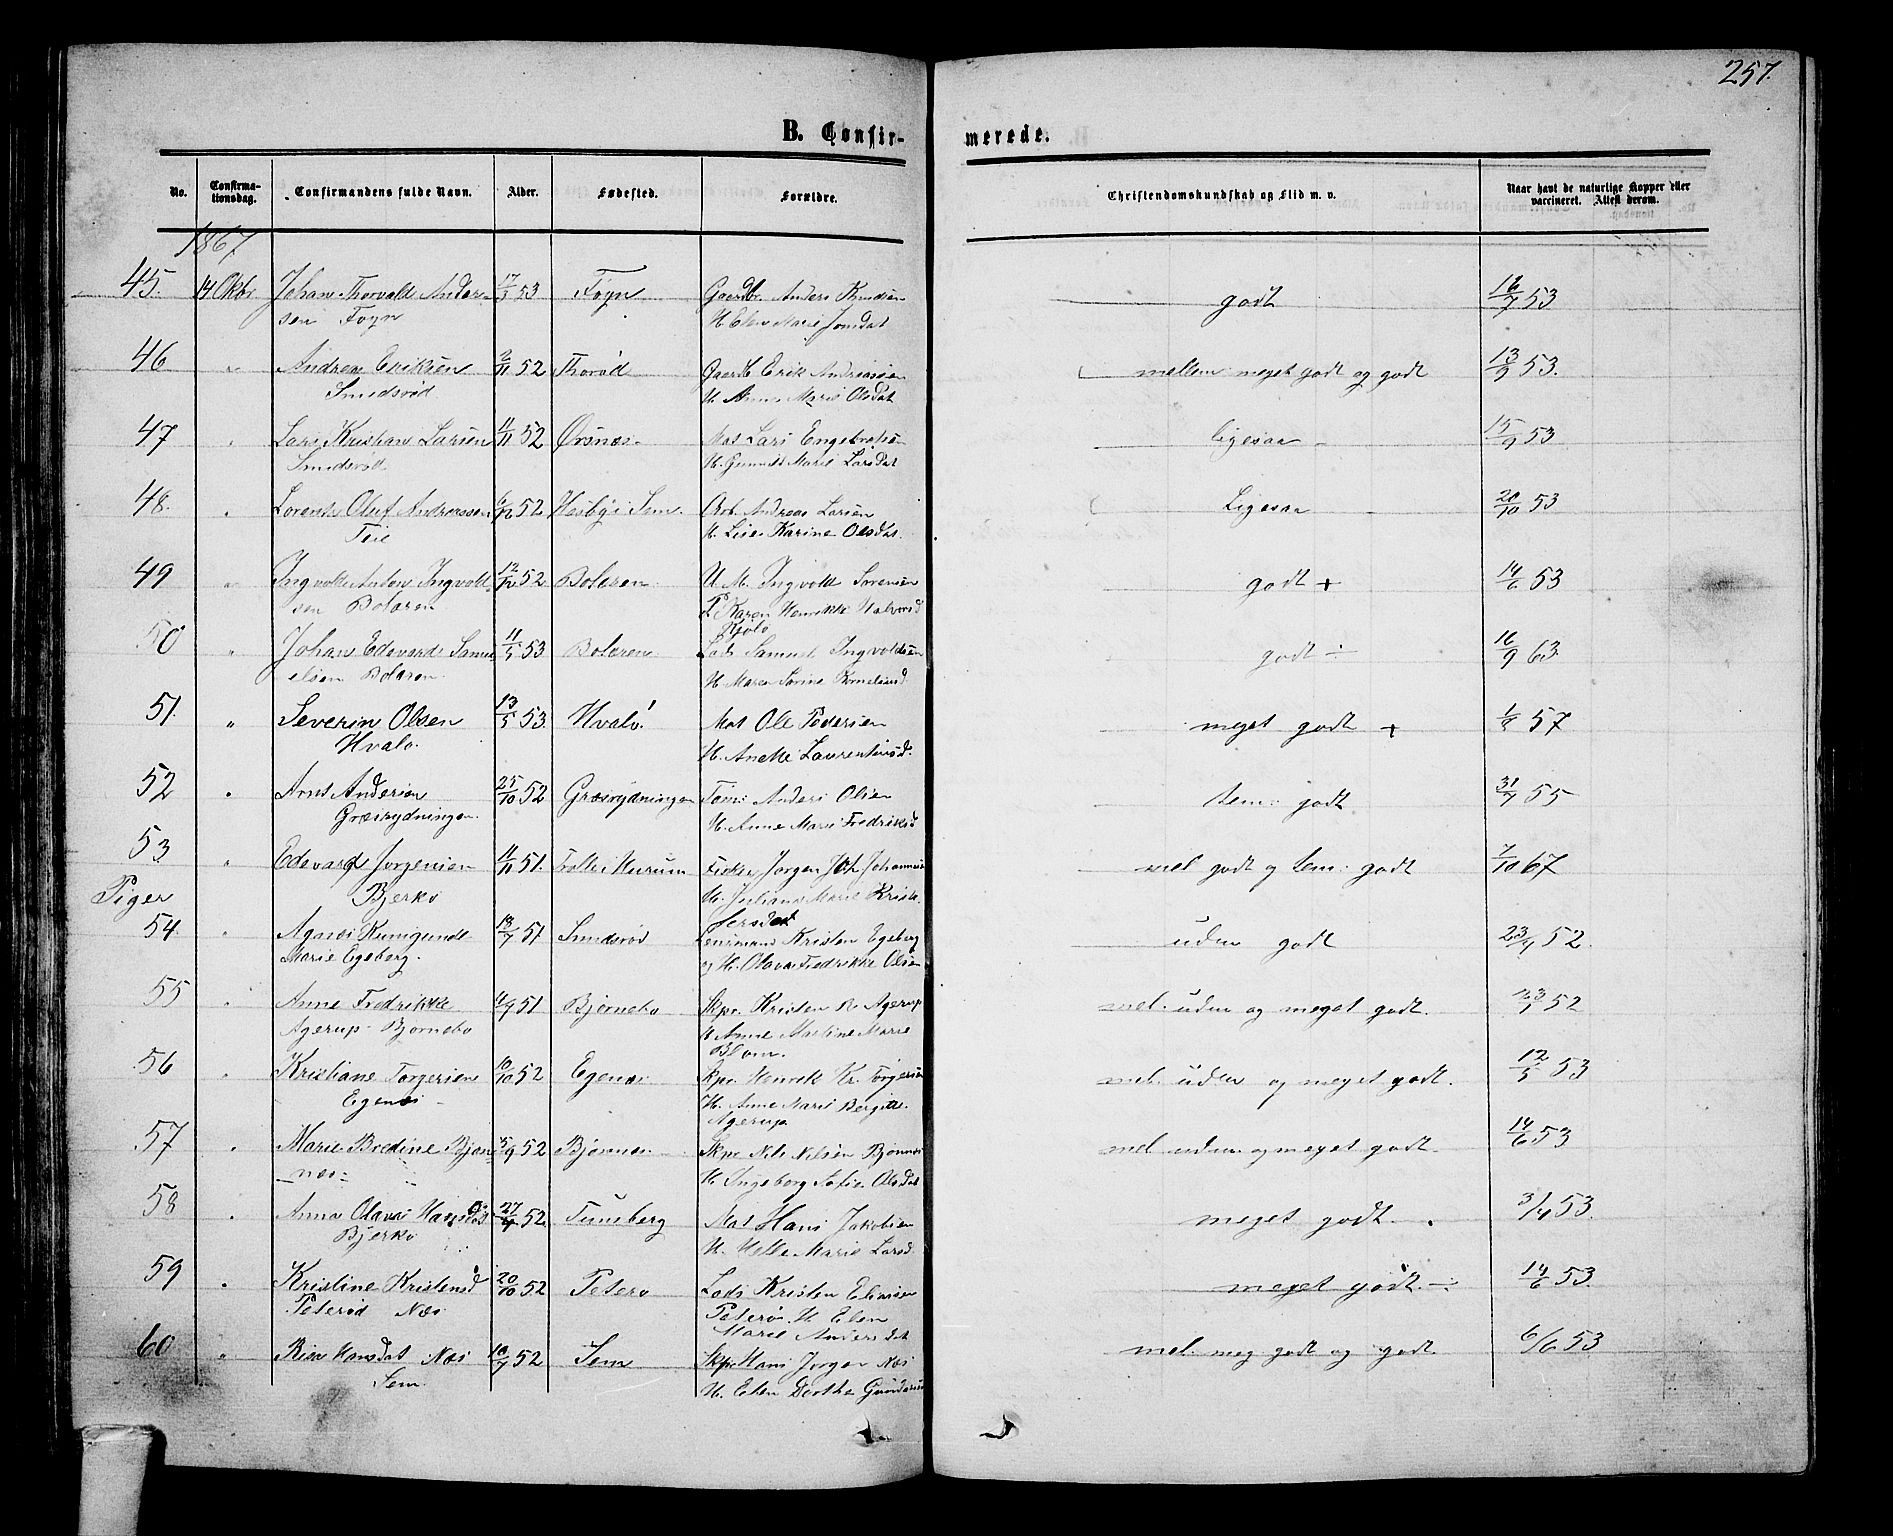 257.
B. Confir-
merede.
No.
Confirma-
tionsdag.
Confirmandens fulde Navn.
Alder.
Fødested.
Forældre.
Christendomskundskab og Flid m. v.
Naar havt de naturlige Kopper eller
vaccineret. Attest derom.
1867
45. 14 Oktbr Johan Thorvald Ander- 17/3 53 Føyn Gaardbr. Anders Knudsen godt 16/7 53
sen Føyn H. Elen Marie Jonsdat
46 " Andrea Eriksen 2/11 52 Thorød Gaardb Erik Andreasen mellem meget godt og godt 13/9 53.
Smidsrød H. Anne Marie Olsdat
47 " Lars Kristian Larsen 11/11 52 Ørsnes Mat Lars Engebretsen ligesaa 15/9 53
Smidsrød H. Gunnild Marie Larsdat
48. " Lorents Oluf Andreassen 6/12 52 Hesby i Sem. Arb. Andreas Larsen Ligesaa 20/10 53
Teie H. Lise Karine Olsdat.
49 " Ingvald Anton Ingvald 12/12 52 Bolæren U. M. Ingvold Sørensen godt + 14/6 53
sen Bolæren P. Karen Henrikke Halvorsd
Kjøle
50 " Johan Edvard Samu 11/5 53 Bolæren Lods Samuel Ingvoldsen godt ÷ 16/9 63
elsen Bolæren H. Maren Sørine Korneliusd
51. " Severin Olsen 13/5 53. Hvalø. Mat Ole Pedersen meget godt + 1/8 57
Hvalø. H. Aneke Laurentiusd.
52 " Arnt Andersen 25/10 52 Græsrydningen Tøm: Anders Olsen tem: godt 31/7 55
Græsrydningen. H. Anne Marie Fredriksd
53 " Edevard Jørgensen 11/11 51. Trolle Hurum Fisker Jørgen Joh Johannes mel godt og tem: godt 7/10 67
Piger
Bjerkø H. Juliane Marie Krist
fersdat
54 " Agnes Kunigunde 13/7 51 Smidsrød Lensmand Kristen Egeberg uden godt 23/4 52.
Marie Egeberg. og H. Olava Fredrikke Olsen
55 " Anne Fredrikke 4/9 51 Bjørnebo Skpr. Kristen R. Agerup mel. uden og meget godt. 23/9 52
Agerup Bjørnebo H Anne Martine Marie
Blom.
56 " Kristiane Torgersen 10/10 52 Egenes Skpr. Henrik Kr. Torgersen mel. uden og meget godt. 12/5 53
Egenes H. Anne Marie Bergitte
Agerup
57 " Marie Bredine Bjøn 5/9 52 Bjønnes Skpr Nils Nilsen Bjønnes mel uden og meget godt. 14/6 53
næs H. Ingeborg Sofie Olsdat
58 " Anna Olava Hansdat 27/4 52 Tunsberg Mat Hans Jakobsen meget godt. 3/4 53.
Bjerkø H. Helle Marie Larsd.
59 " Kristine Kristensd 20/10 52 Peterø Lods Kristen Eliasen meget godt ÷ 14/6 53.
Peterød Næs Peterø. H Elen
Marie Andersdat
60 " Risa Hansdat Næs 10/7 52 Sem Skpr. Hans Jørgen Næs mel. meg godt og godt 6/6 53
Sem. H. Elen Dorthe Gundersen